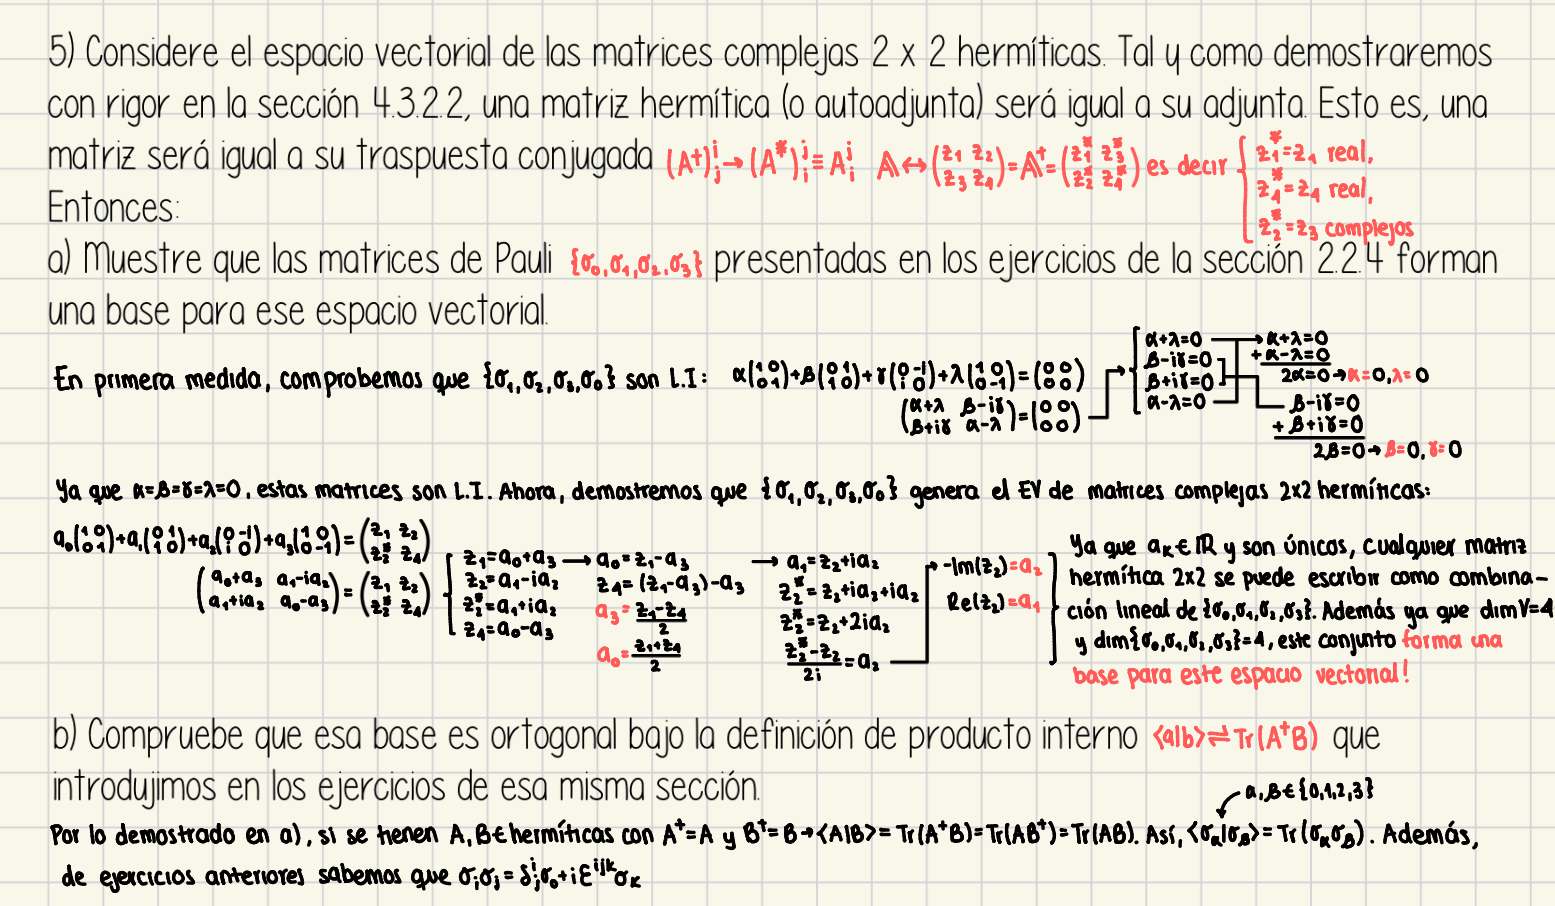 5) Considere el espacio vectorial de las matrices complejas 2 x 2 hermíticas. Tal y como demostraremos
con rigor en la sección 4.3.2.2, una matriz hermítica (o autoadjunta) será igual a su adjunta. Esto es, una
matriz será igual a su traspuesta conjugada (A⁺)ⁱⱼ → (A*)ʲᵢ ≡ Aʲᵢ 𝔸 ↔ (z₁ z₂ z₃ z₄) = 𝔸⁺ = (z₁* z₃* z₂* z₄*) es decir { z₁* = z₁ real,
z₄* = z₄ real,
z₂* = z₃ complejos
Entonces:
a) Muestre que las matrices de Pauli {σ₀, σ₁, σ₂, σ₃} presentadas en los ejercicios de la sección 2.2.4 forman
una base para ese espacio vectorial.
En primera medida, comprobemos que {σ₁, σ₂, σ₃, σ₀} son L.I: α(1 0 0 1) + β(0 1 1 0) + γ(0 -i i 0) + λ(1 0 0 -1) = (0 0 0 0)
(α+λ β-iγ β+iγ α-λ) = (0 0 0 0)
α+λ=0
β-iγ=0
β+iγ=0
α-λ=0
α+λ=0
+ α-λ=0
2α=0 → α=0, λ=0
β-iγ=0
+ β+iγ=0
2β=0 → β=0, γ=0
Ya que α=β=γ=λ=0, estas matrices son L.I. Ahora, demostremos que {σ₁, σ₂, σ₃, σ₀} genera el EV de matrices complejas 2x2 hermíticas:
a₀(1 0 0 1) + a₁(0 1 1 0) + a₂(0 -i i 0) + a₃(1 0 0 -1) = (z₁ z₂ z₂* z₄)
(a₀+a₃ a₁-ia₂ a₁+ia₂ a₀-a₃) = (z₁ z₂ z₂* z₄)
z₁=a₀+a₃
z₂=a₁-ia₂
z₂*=a₁+ia₂
z₄=a₀-a₃
→ a₀=z₁-a₃
z₄=(z₁-a₃)-a₃
a₃=(z₁-z₄)/2
a₀=(z₁+z₄)/2
→ a₁=z₂+ia₂
z₂*=z₂+ia₂+ia₂
z₂*=z₂+2ia₂
(z₂*-z₂)/2i = a₂
-Im(z₂)=a₂
Re(z₂)=a₁
Ya que aₖ∈ℝ y son únicos, cualquier matriz
hermítica 2x2 se puede escribir como combina-
ción lineal de {σ₀, σ₁, σ₂, σ₃}. Además ya que dimV=4
y dim{σ₀, σ₁, σ₂, σ₃}=4, este conjunto forma una
base para este espacio vectorial!
b) Compruebe que esa base es ortogonal bajo la definición de producto interno ⟨a|b⟩ ⇌ Tr(A⁺B) que
introdujimos en los ejercicios de esa misma sección.
α, β ∈ {0,1,2,3}
Por lo demostrado en a), si se tienen A, B ∈ hermíticas con A⁺=A y B⁺=B → ⟨A|B⟩ = Tr(A⁺B) = Tr(AB⁺) = Tr(AB). Así, ⟨σ_α|σ_β⟩ = Tr(σ_α σ_β). Además,
de ejercicios anteriores sabemos que σᵢσⱼ = δⁱⱼσ₀ + iεⁱʲᵏσₖ